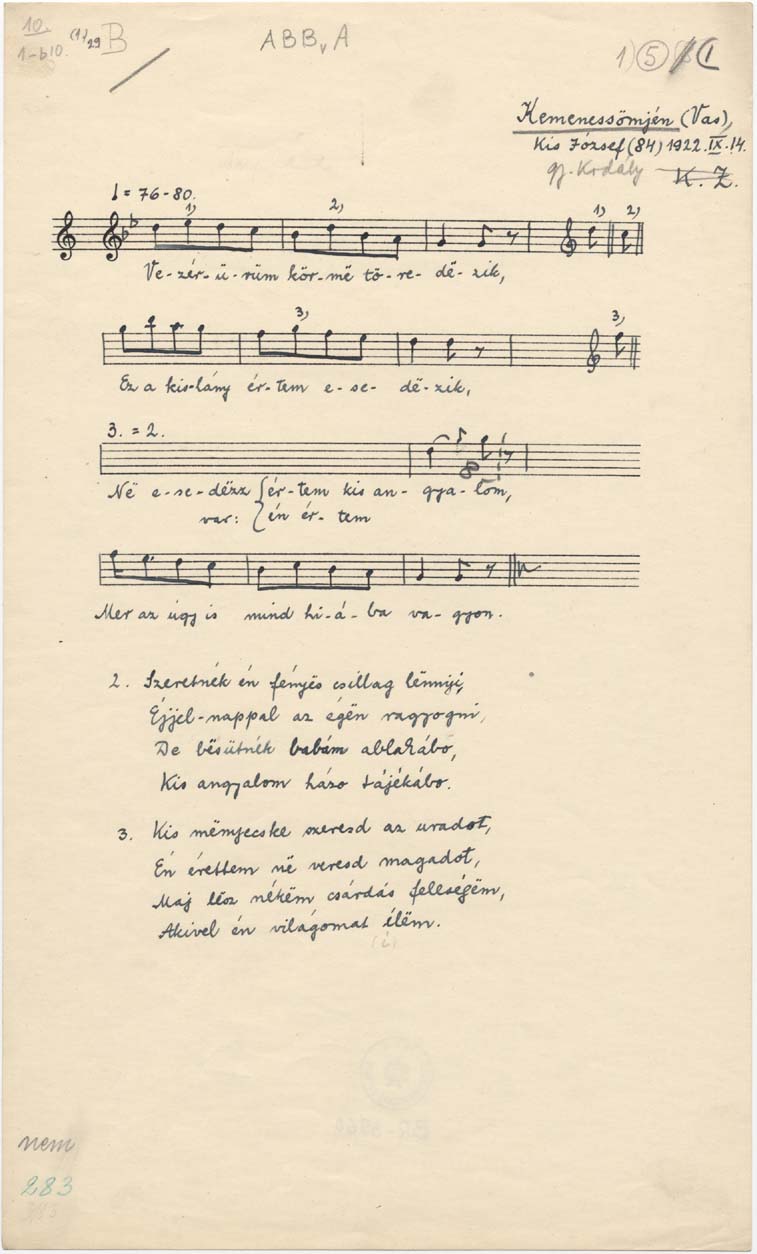 10.
1-b10. (1) 29 B
ABBvA
1) 5 I
Kemenessömjén (Vas),
Kis József (84) 1922.IX.14.
gy. Kodály K. Z.
= 76-80.
1) 2) 1) 2)
Ve-zér-ü-rüm kör-më tö-re-dë-zik,
3) 3)
Ez a kis-lány ér-tem e-se-dë-zik,
3. = 2.
8
Në e-se-dëzz ér-tem kis an-gya-lom,
var: én ér-tem
Mer az úgy is mind hi-á-ba va-gyon.
2. Szeretnék én fényës csillag lënnyi,
Éjjel-nappal az égën ragyogni,
De bësütnék babám ablakábo,
Kis angyalom házo tájékábo.
3. Kis mënyecske szeresd az uradot,
Én érettem në veresd magadot,
Maj lësz nékëm csárdás feleségëm,
Akivel én világomat élëm.
(i)
nem
283